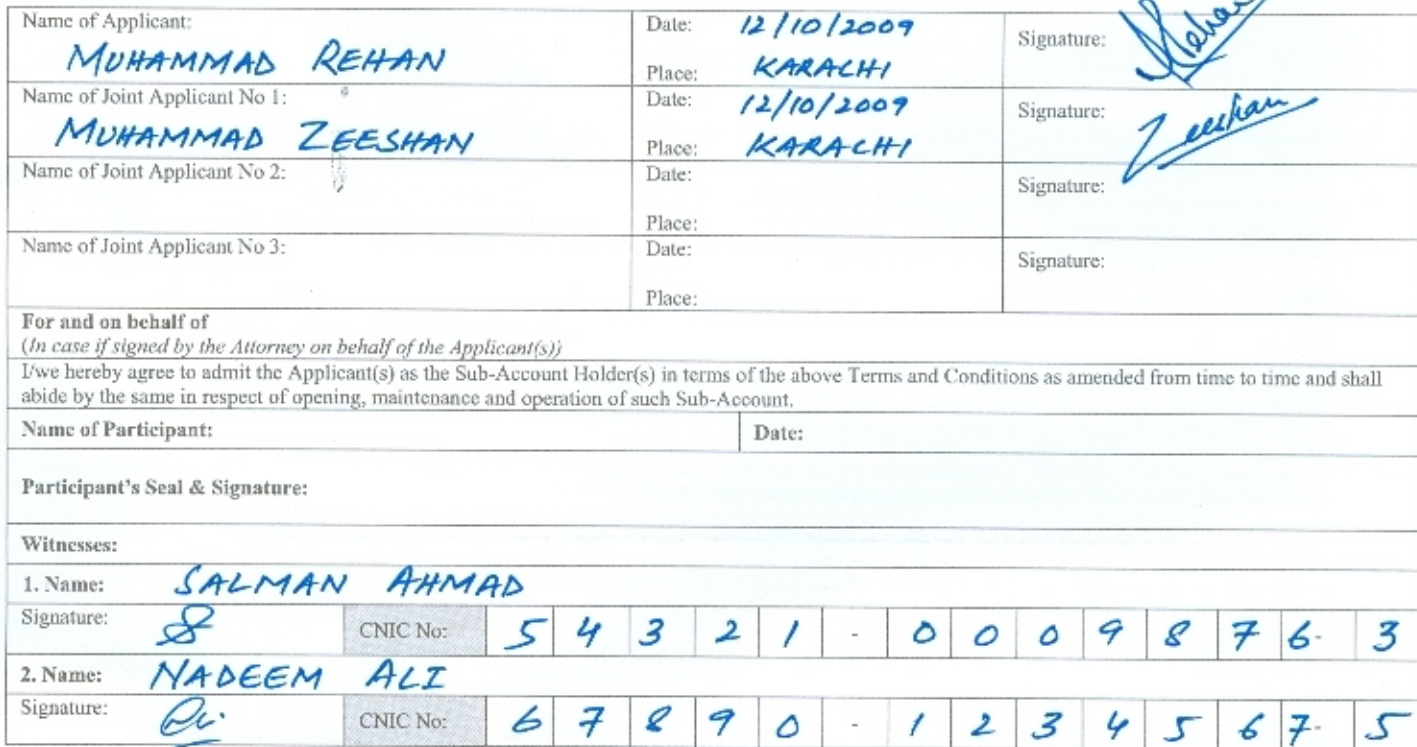 Name of Applicant: Date: 12/10/2009 Signature: Rehan
MUHAMMAD REHAN Place: KARACHI
Name of Joint Applicant No 1: Date: 12/10/2009 Signature: Zeeshan
MUHAMMAD ZEESHAN Place: KARACHI
Name of Joint Applicant No 2: Date: Signature:
Place:
Name of Joint Applicant No 3: Date: Signature:
Place:
For and on behalf of
(In case if signed by the Attorney on behalf of the Applicant(s))
I/we hereby agree to admit the Applicant(s) as the Sub-Account Holder(s) in terms of the above Terms and Conditions as amended from time to time and shall
abide by the same in respect of opening, maintenance and operation of such Sub-Account.
Name of Participant: Date:
Participant's Seal & Signature:
Witnesses:
1. Name: SALMAN AHMAD
Signature: CNIC No: 5 4 3 2 1 - 0 0 0 9 8 7 6 - 3
2. Name: NADEEM ALI
Signature: CNIC No: 6 7 8 9 0 - 1 2 3 4 5 6 7 - 5